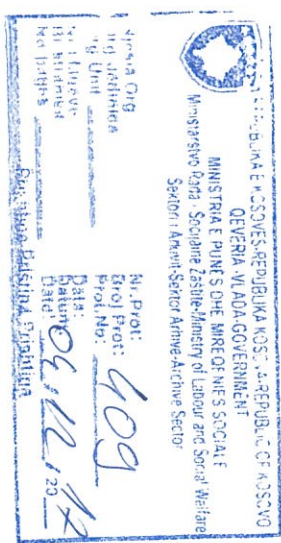 REPUBLIKA E KOSOVËS-REPUBLIKA KOSOVA-REPUBLIC OF KOSOVO
QEVERIA-VLADA-GOVERNMENT
MINISTRIA E PUNËS DHE MIRËQENIES SOCIALE
Ministarstvo Rada i Socijalne Zaštite-Ministry of Labour and Social Welfare
Sektori i Arkivit-Sektor Arhive-Archive Sector
Org
Org. Jedinica
Org Unit
Nr. Prot:
Broj Prot:
Prot. No: 409
Data:
Datum:
Date: 04/12/2017
No pages
Prishtinë Priština Prishtina